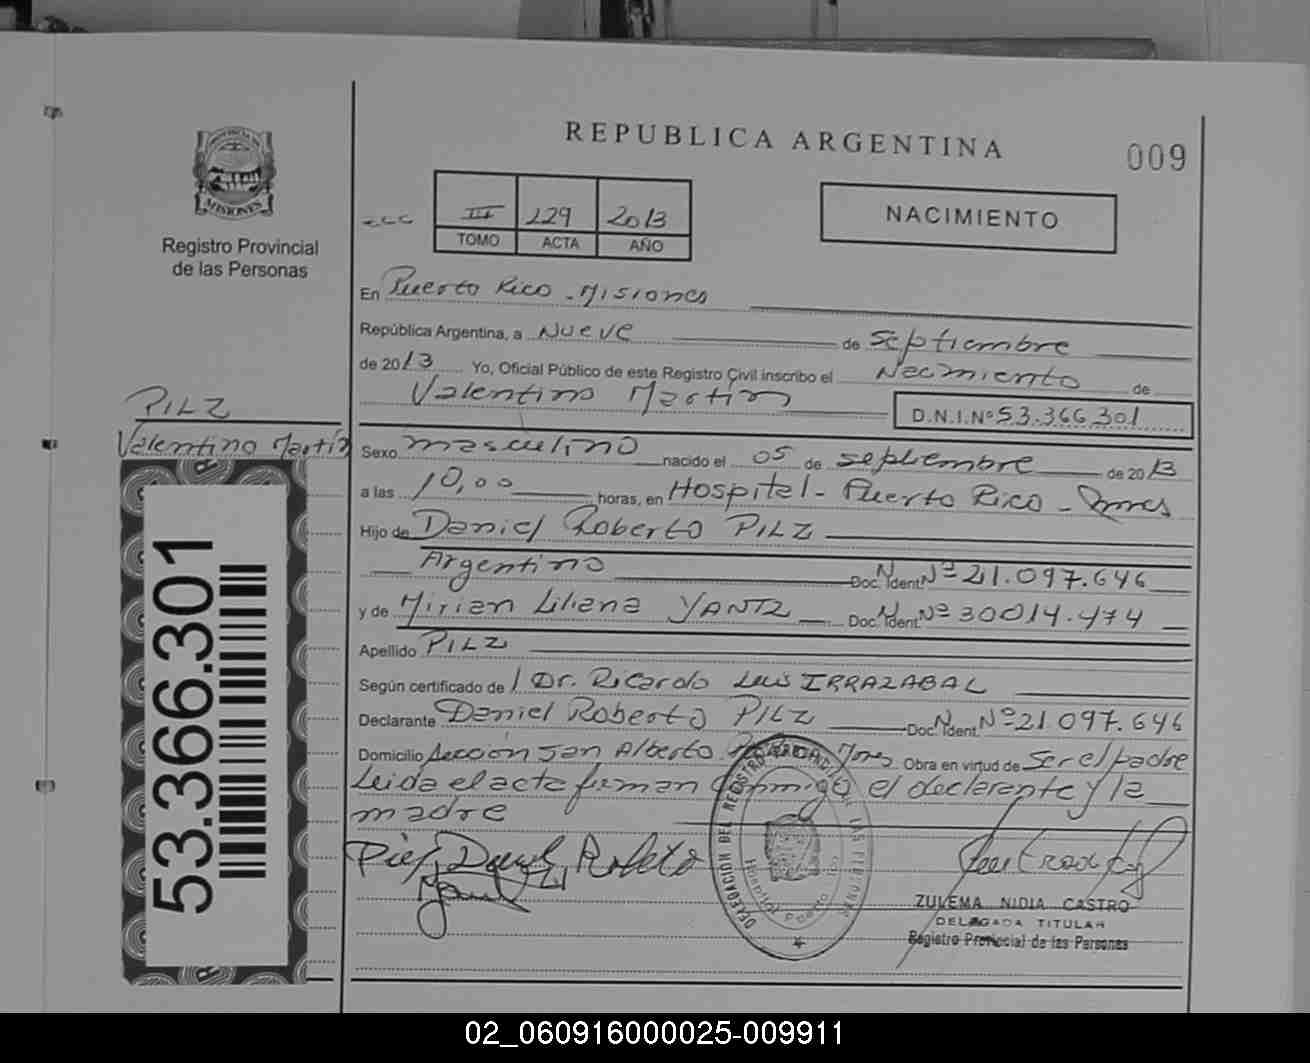 REPUBLICA ARGENTINA
009
PROVINCIA DE
MISIONES
Registro Provincial
de las Personas
III 229 2013
TOMO ACTA AÑO
NACIMIENTO
En Puerto Rico - Misiones
República Argentina, a Nueve de septiembre
de 2013 Yo, Oficial Público de este Registro Civil inscribo el Nacimiento de
Valentino Martin
D.N.I.Nº 53.366.301
PILZ
Valentino Martin
Sexo masculino nacido el 05 de septiembre de 2013
a las 10,00 horas, en Hospital - Puerto Rico - Mnes
Hijo de Daniel Roberto PILZ
Argentino Doc. Ident. Nº 21.097.646
y de Mirian Liliana YANTZ Doc. Ident. Nº 30014.474
Apellido PILZ
Según certificado de Dr. Ricardo Luis IRRAZABAL
Declarante Daniel Roberto PILZ Doc. Ident. Nº 21097.646
Domicilio Sección San Alberto Mnes Obra en virtud de Ser el padre
Leida el acta firman conmigo el declarente y la
madre
53.366.301
Pilz Daniel Roberto
DELEGACIÓN DEL REGISTRO PROVINCIAL DE LAS PERSONAS
Hospital Puerto Rico
ZULEMA NIDIA CASTRO
DELEGADA TITULAR
Registro Provincial de las Personas
02_060916000025-009911